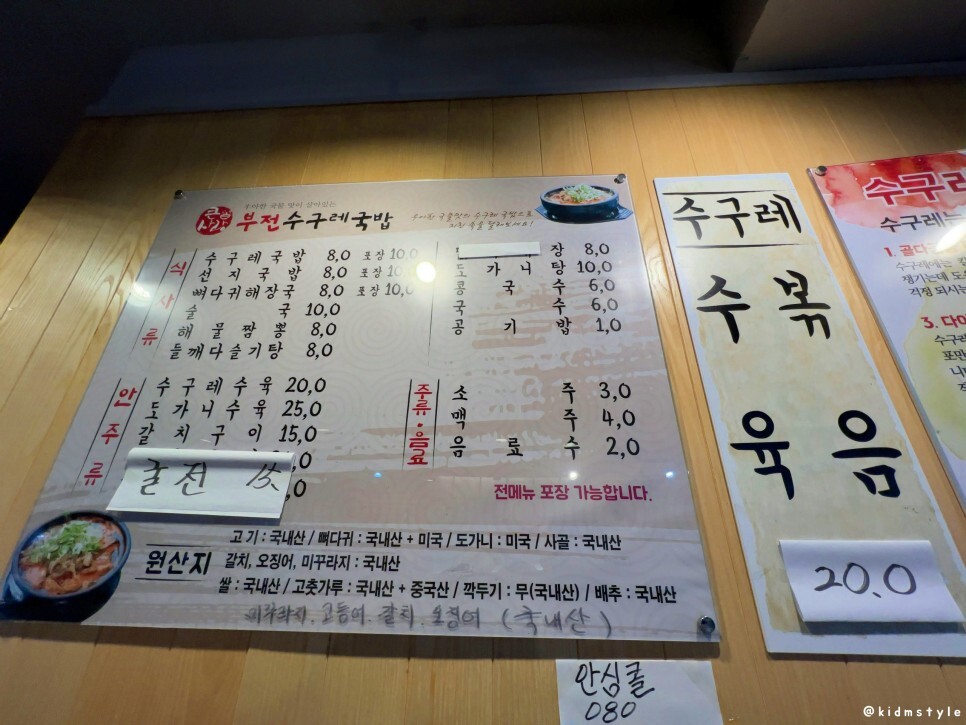 우아한 국물 맛이 살아있는
큰형 사장 부전 수구레국밥
식사류
수구레국밥 8,0 포장 10,0
선지국밥 8,0 포장 10
뼈다귀해장국 8,0 포장 10,0
술국 10,0
해물짬뽕 8,0
들깨다슬기탕 8,0
장 8,0
도가니탕 10,0
콩국수 6,0
국수 6,0
공기밥 1,0
안주류
수구레수육 20,0
도가니수육 25,0
갈치구이 15,0
굴전
,0
주류·음료
소주 3,0
맥주 4,0
음료수 2,0
전메뉴 포장 가능합니다.
원산지
고기 : 국내산 / 뼈다귀 : 국내산 + 미국 / 도가니 : 미국 / 사골 : 국내산
갈치, 오징어, 미꾸라지 : 국내산
쌀 : 국내산 / 고춧가루 : 국내산 + 중국산 / 깍두기 : 무(국내산) / 배추 : 국내산
미꾸라지. 고등어. 갈치. 오징어 (국내산)
수구레
수육
볶음
20.0
수구레
수구레는
1. 골다
수구레는 칼
챙기는데 도
걱정 되시는
3. 다이
수구레
포만
니다
안심굴
080
@kidmstyle